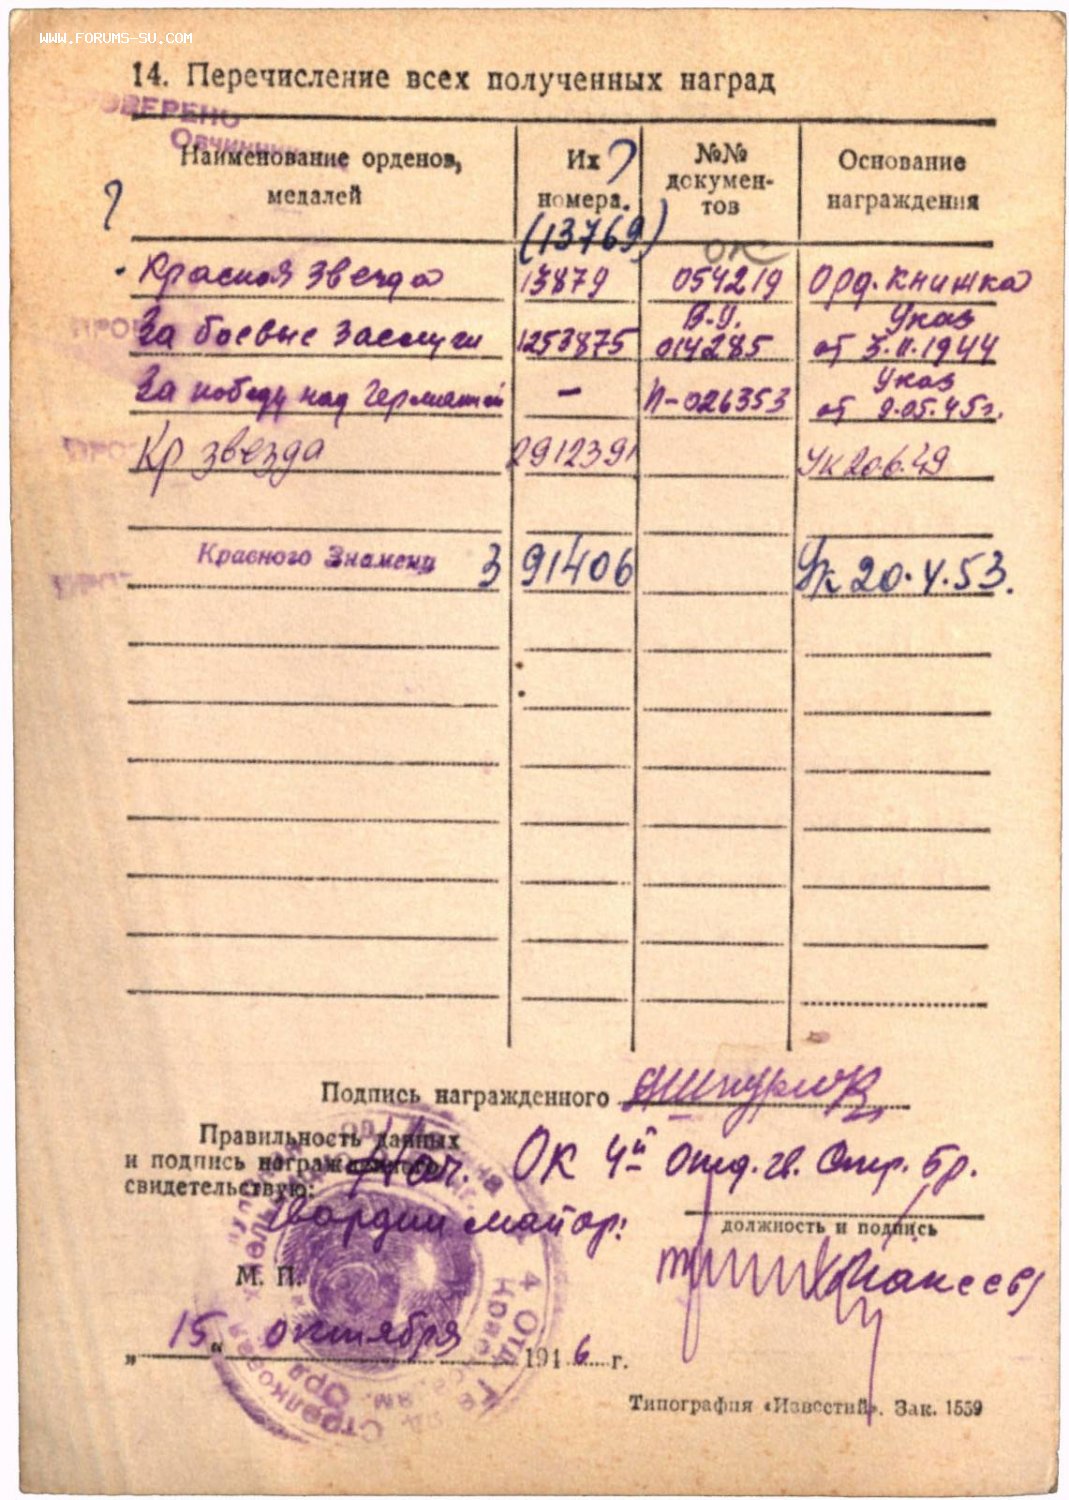 WWW.FORUMS-SU.COM
14. Перечисление всех полученных наград
ОВЕРЕНО
Наименование орденов, медалей
Их номера.
№№ докумен-тов
Основание награждения
?
(13769)
ОК
Красная Звезда 13879 054219 Орд. книжка
За боевые заслуги 1253875 В.У. 014285 Указ от 3.11.1944
За победу над Германией – П-026353 Указ от 9.05.45г.
Кр звезда 2912391 Ук 20.6.49
Красного Знамени 3 91406 Ук 20.4.53.
Подпись награжденного
Правильность данных
и подпись награжденного
свидетельствую:
Нач. ОК 4й Отд. гв. Стр. Бр.
Гвардии майор:
должность и подпись
(Макеев)
М. П.
„15“ октября 1946 г.
Типография «Известий». Зак. 1559